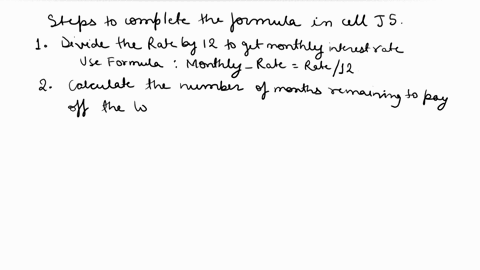 Steps to complete the formula in cell J5.
1. Divide the Rate by 12 to get monthly interest rate
Use Formula : Monthly_Rate = Rate/12
2. Calculate the number of months remaining to pay
off the lo